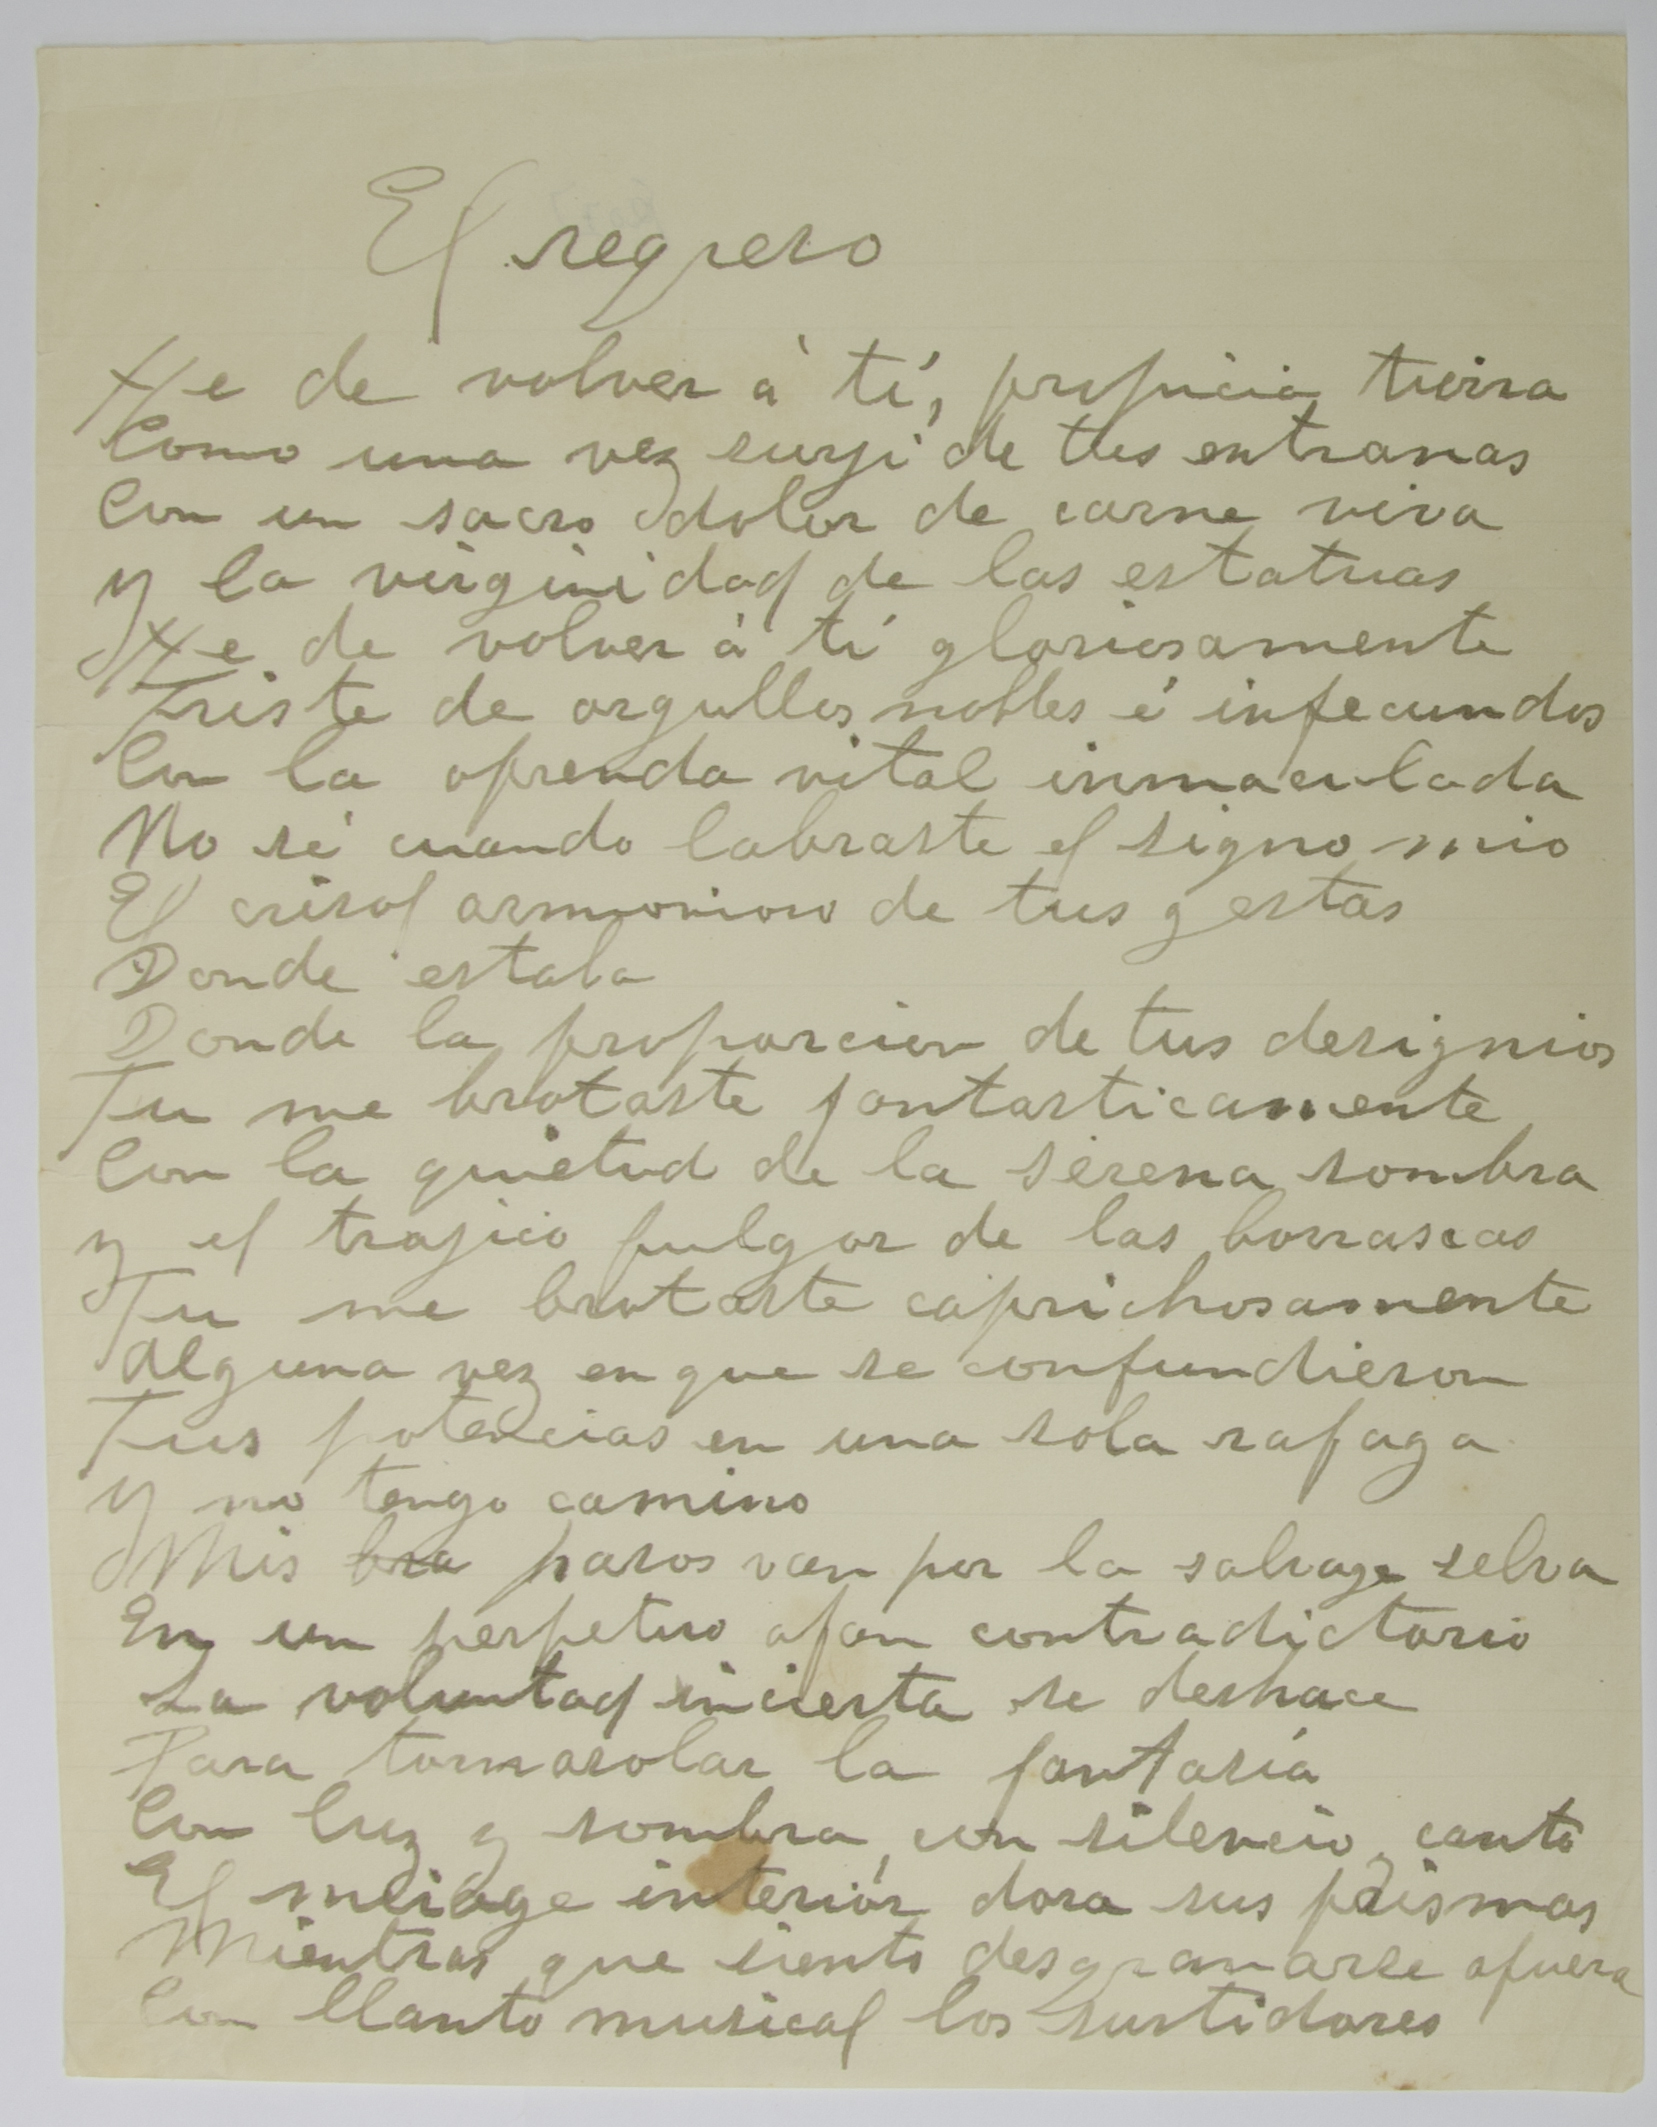 El regreso
He de volver á tí, propicia tierra
Como una vez surji de tus entranas
Con un sacro dolor de carne viva
y la virginidad de las estatuas
He de volver á tí gloriosamente
Triste de orgullos nobles é infecundos
Con la ofrenda vital inmaculada
No sé cuando labraste el signo mio
El crisol armonioso de tus gestas
Donde estaba
Donde la proporcion de tus designios
Tu me brotaste fantasticamente
Con la quietud de la serena sombra
y el trajico fulgor de las borrascas
Tu me brotaste caprichosamente
Alguna vez en que se confundieron
Tus potencias en una sola rafaga
y no tengo camino
Mis bra pasos van por la salvage selva
En un perpetuo afan contradictorio
La voluntad incierta se deshace
Para tornasolar la fantasía
Con luz y sombra, con silencio, canto
El miriage interior dora sus prismas
Mientras que siento desgranarse afuera
Con llanto musical los surtidores